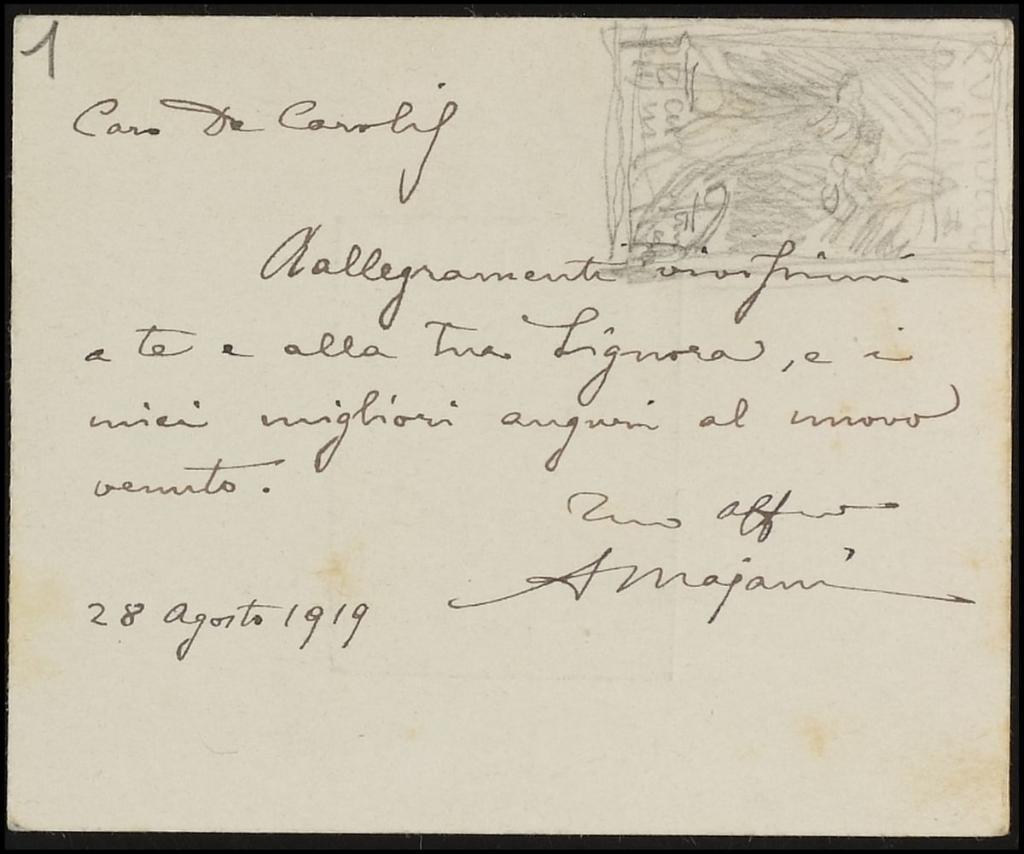 1
Caro De Carolis
Rallegramenti vivissimi
a te e alla tua Signora, e i
miei migliori auguri al nuovo
venuto.
Tuo affmo
AMajani
28 Agosto 1919